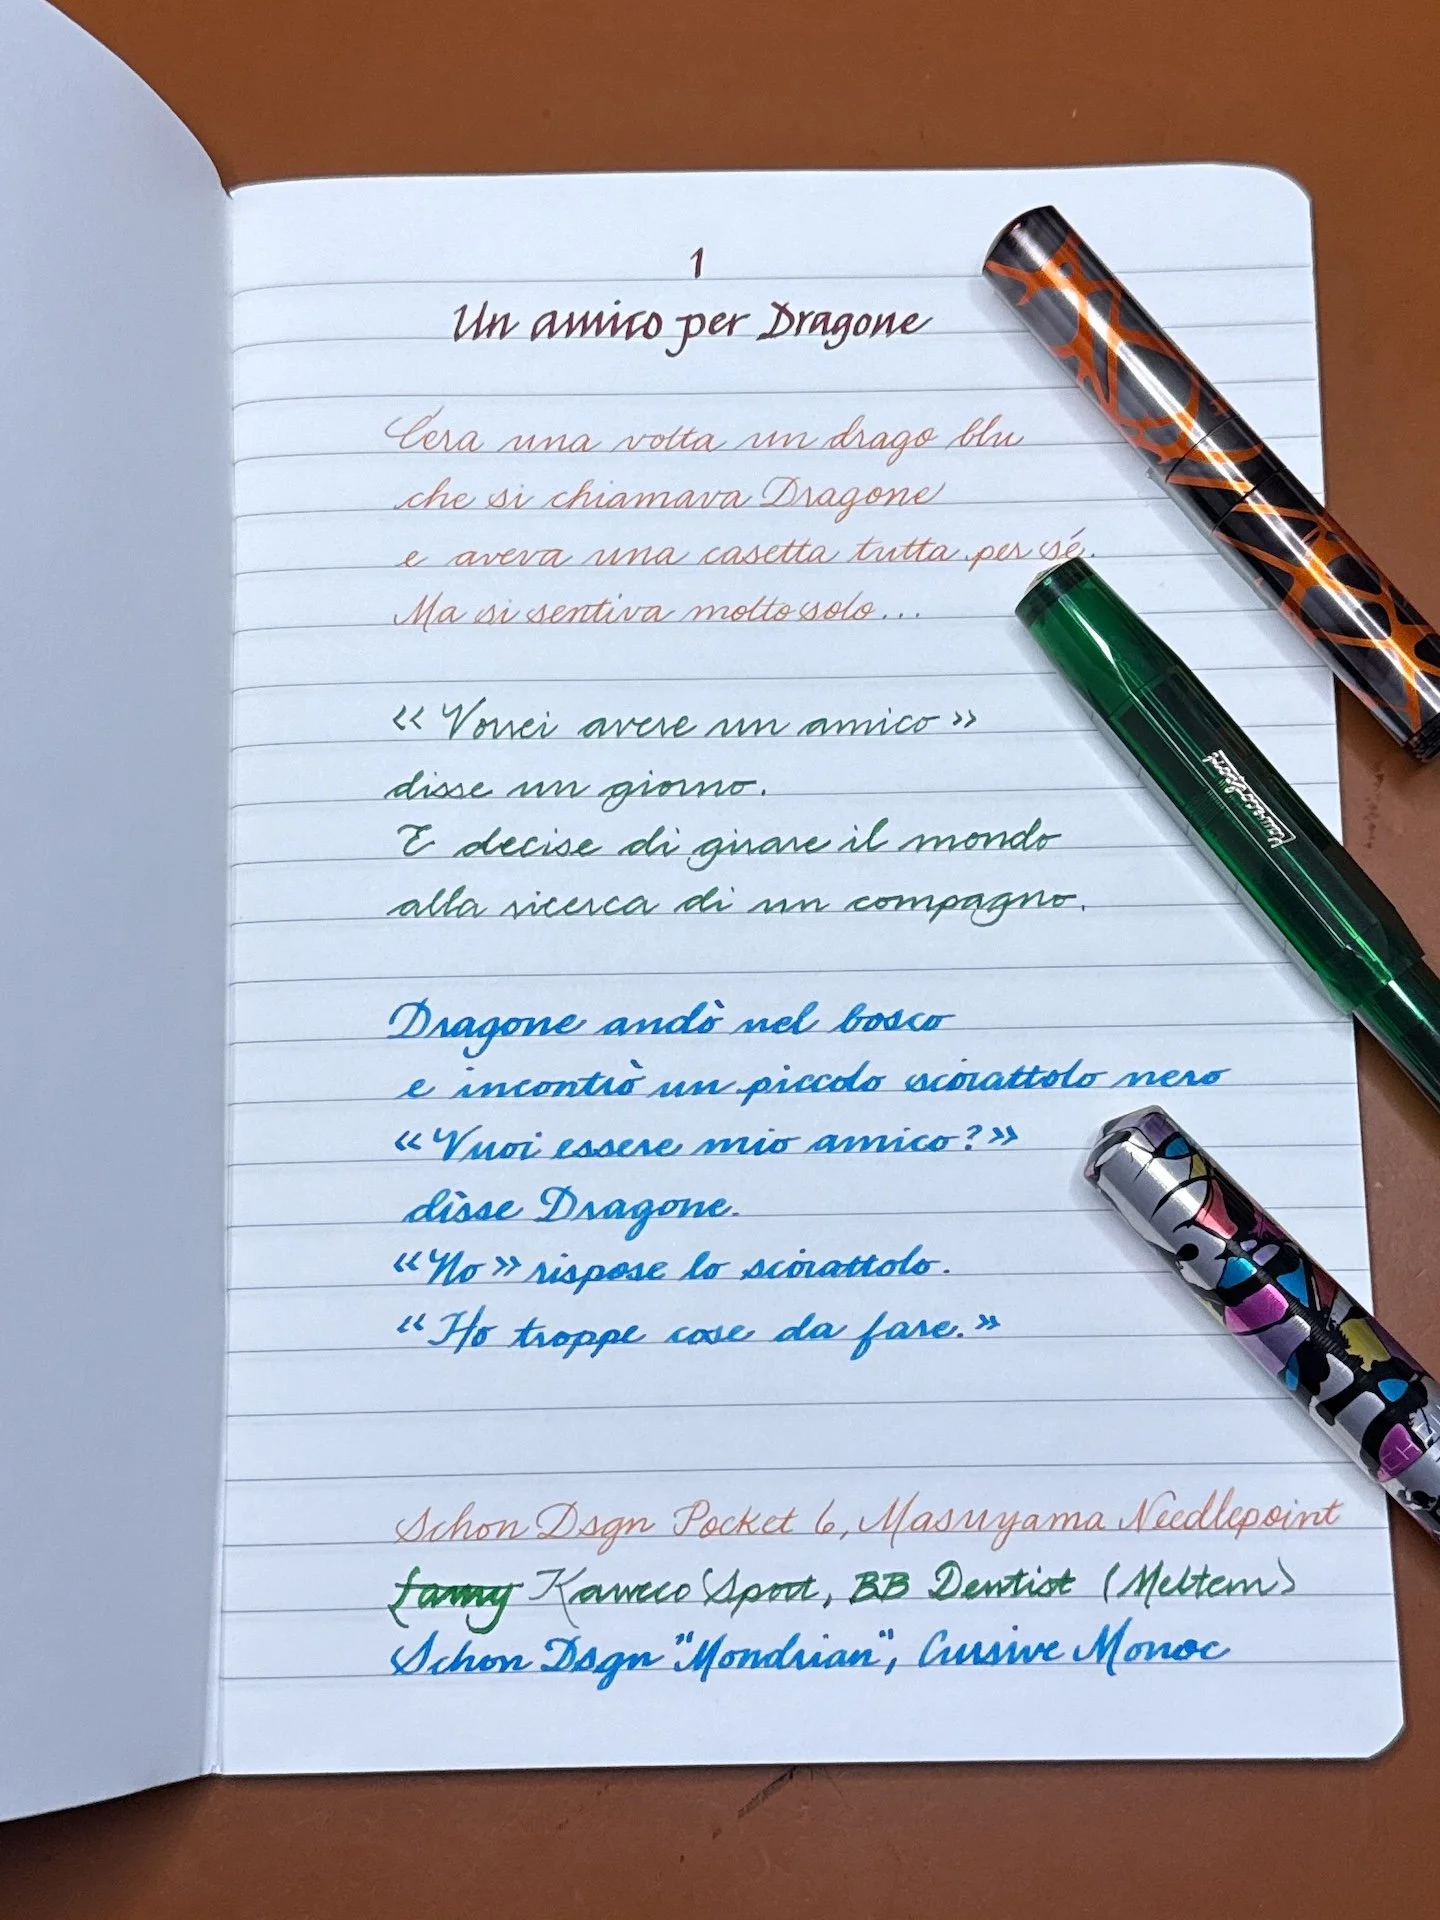 1
Un amico per Dragone
C'era una volta un drago blu
che si chiamava Dragone
e aveva una casetta tutta per sé.
Ma si sentiva molto solo...
«Vorrei avere un amico»
disse un giorno.
E decise di girare il mondo
alla ricerca di un compagno.
Dragone andò nel bosco
e incontrò un piccolo scoiattolo nero
«Vuoi essere mio amico?»
disse Dragone.
«No» rispose lo scoiattolo.
«Ho troppe cose da fare.»
Schon Dsgn Pocket 6, Masuyama Needlepoint
Kaweco Sport, BB Dentist (Meltem)
Schon Dsgn "Mondrian", Cursive Monoc
Kaweco Sport